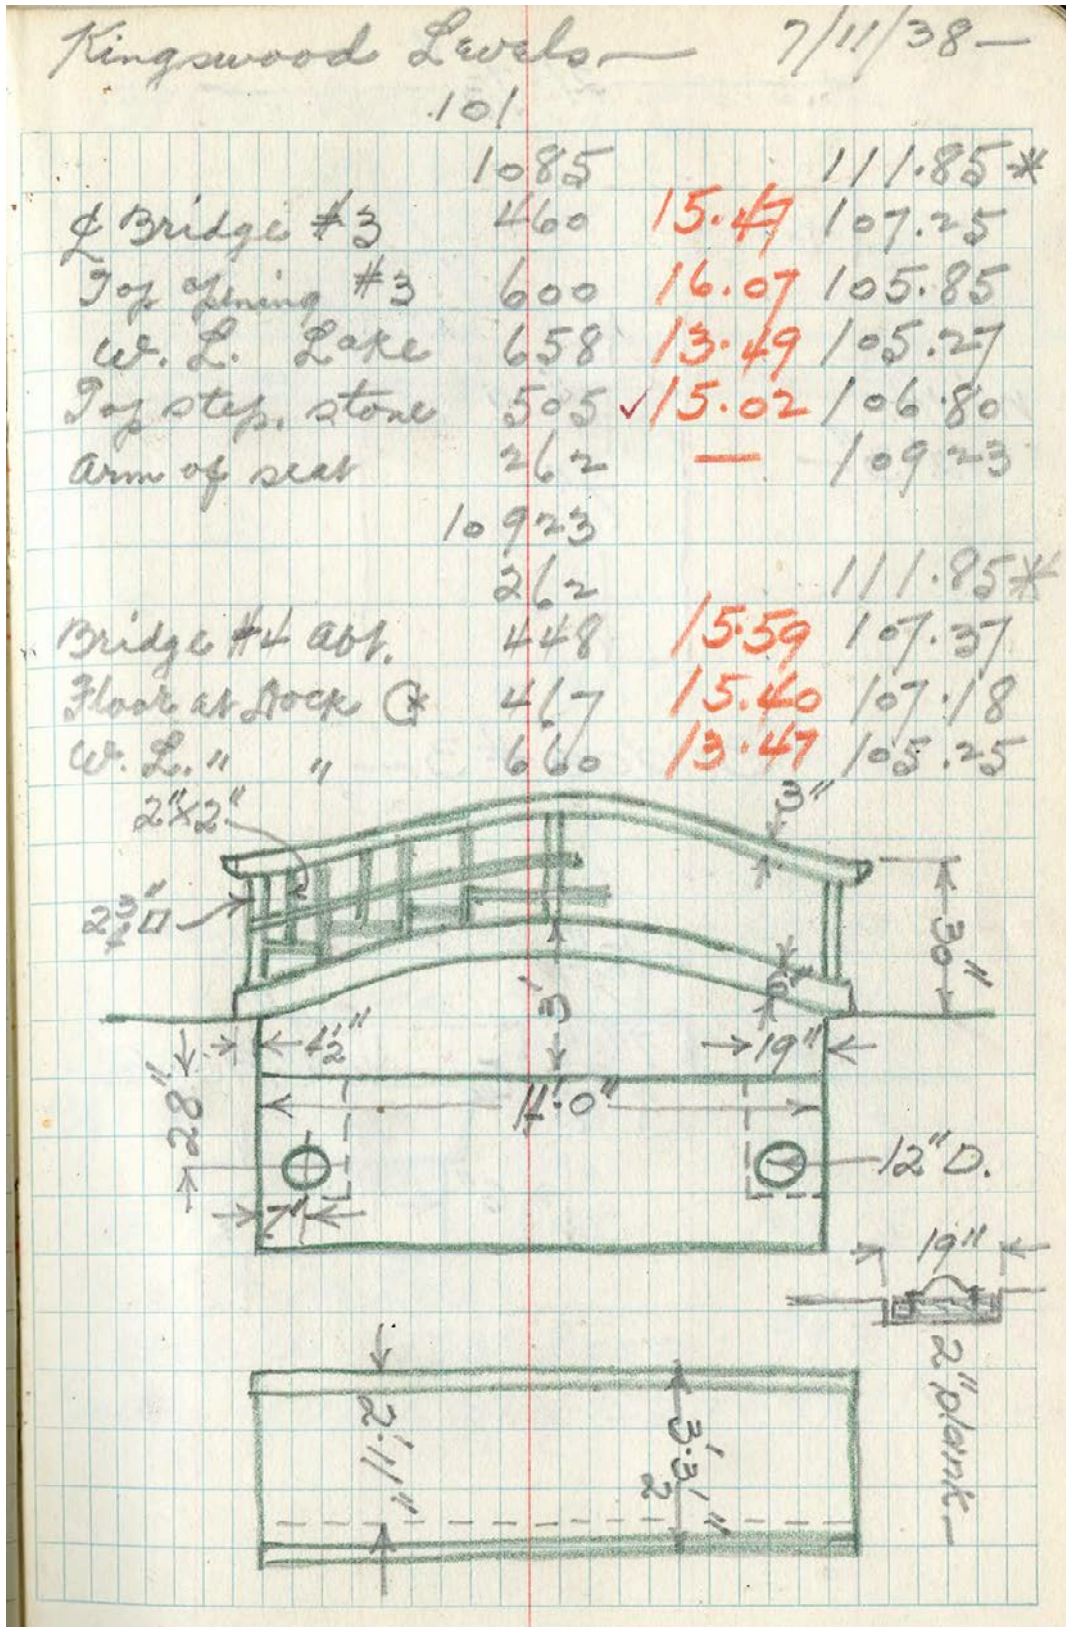 Kingswood Levels— 7/11/38—
101
1085 111.85*
₵ Bridge #3 460 15.47 107.25
Top opening #3 600 16.07 105.85
W. L. Lake 658 13.49 105.27
Top step. stone 505 ✓15.02 106.80
Arm of seat 262 — 10923
10923
262 111.85*
Bridge #4 Abt. 448 15.59 107.37
Floor at Dock 417 15.40 107.18
W. L. " " 660 13.47 105.25
2"x2"
3"
2 3/4"□
30"
6"
3'
4½"
19"
28"
11'-0"
12"D.
7"
19"
2" plank—
2'-11"
3'-3½"